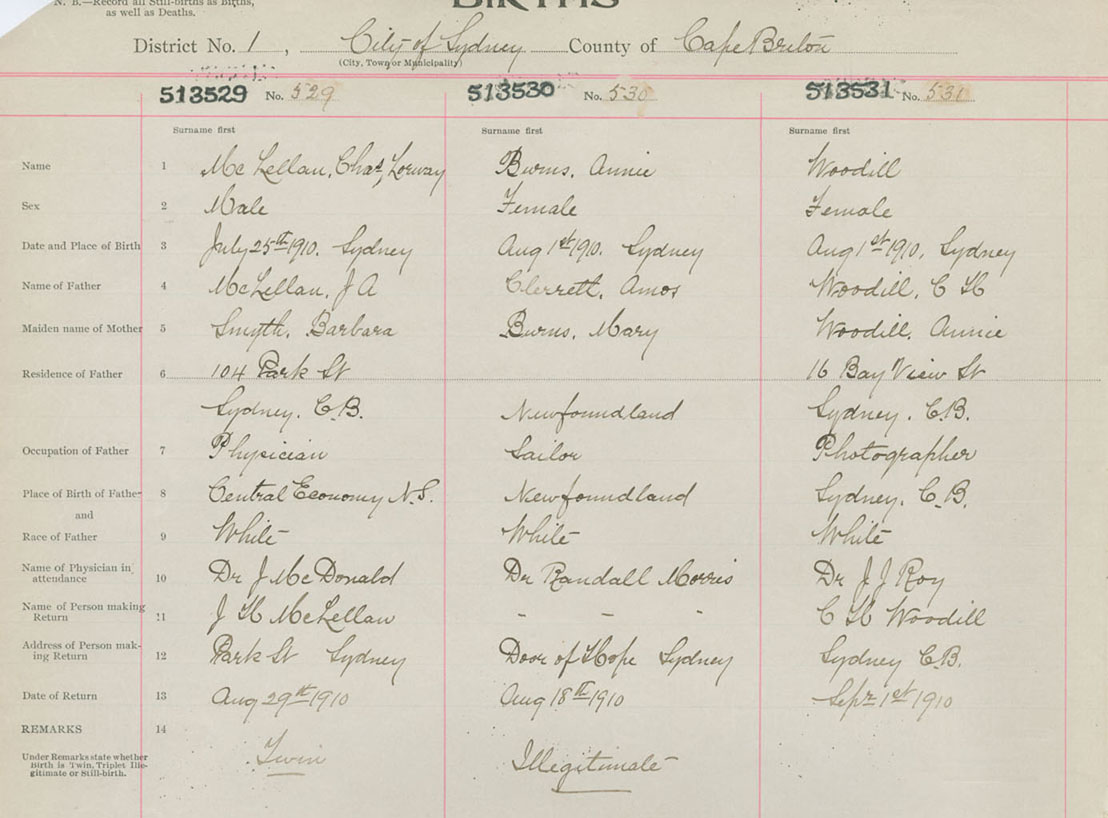 N. B.—Record all Still-births as Births,
as well as Deaths.
BIRTHS
District No. 1, City of Sydney County of Cape Breton
(City, Town or Municipality)
513529 No. 529 513530 No. 530 513531 No. 531
Surname first Surname first Surname first
Name 1 McLellan, Chas, Lorway Burns, Annie Woodill
Sex 2 Male Female Female
Date and Place of Birth 3 July 25th 1910. Sydney Aug 1st 1910. Sydney Aug 1st 1910, Sydney
Name of Father 4 McLellan, J A Clerrett, Amos Woodill, C H
Maiden name of Mother 5 Smyth, Barbara Burns, Mary Woodill, Annie
Residence of Father 6 104 Park St 16 Bay View St
Sydney. C.B. Newfoundland Sydney. C.B.
Occupation of Father 7 Physician Sailor Photographer
Place of Birth of Father 8 Central Economy N.S. Newfoundland Sydney, C.B.
and
Race of Father 9 White White White
Name of Physician in attendance 10 Dr J McDonald Dr Randall Morris Dr J J Roy
Name of Person making Return 11 J H McLellan " " " C H Woodill
Address of Person making Return 12 Park St Sydney Door of Hope Sydney Sydney C.B.
Date of Return 13 Aug 29th 1910 Aug 18th 1910 Sept 1st 1910
REMARKS 14
Under Remarks state whether
Birth is Twin, Triplet Ille-
gitimate or Still-birth.
Twin Illegitimate